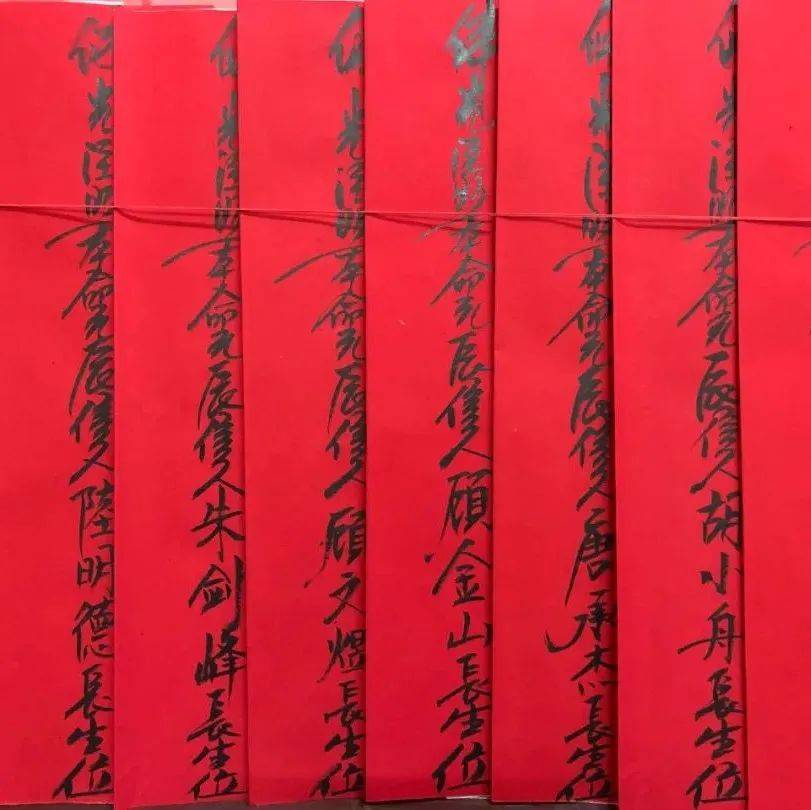 佛光注照本命元辰信人胡小舟長生位
佛光注照本命元辰信人唐承杰長生位
佛光注照本命元辰信人顾金山長生位
佛光注照本命元辰信人顾文煜長生位
佛光注照本命元辰信人朱剑峰長生位
佛光注照本命元辰信人陸明德長生位